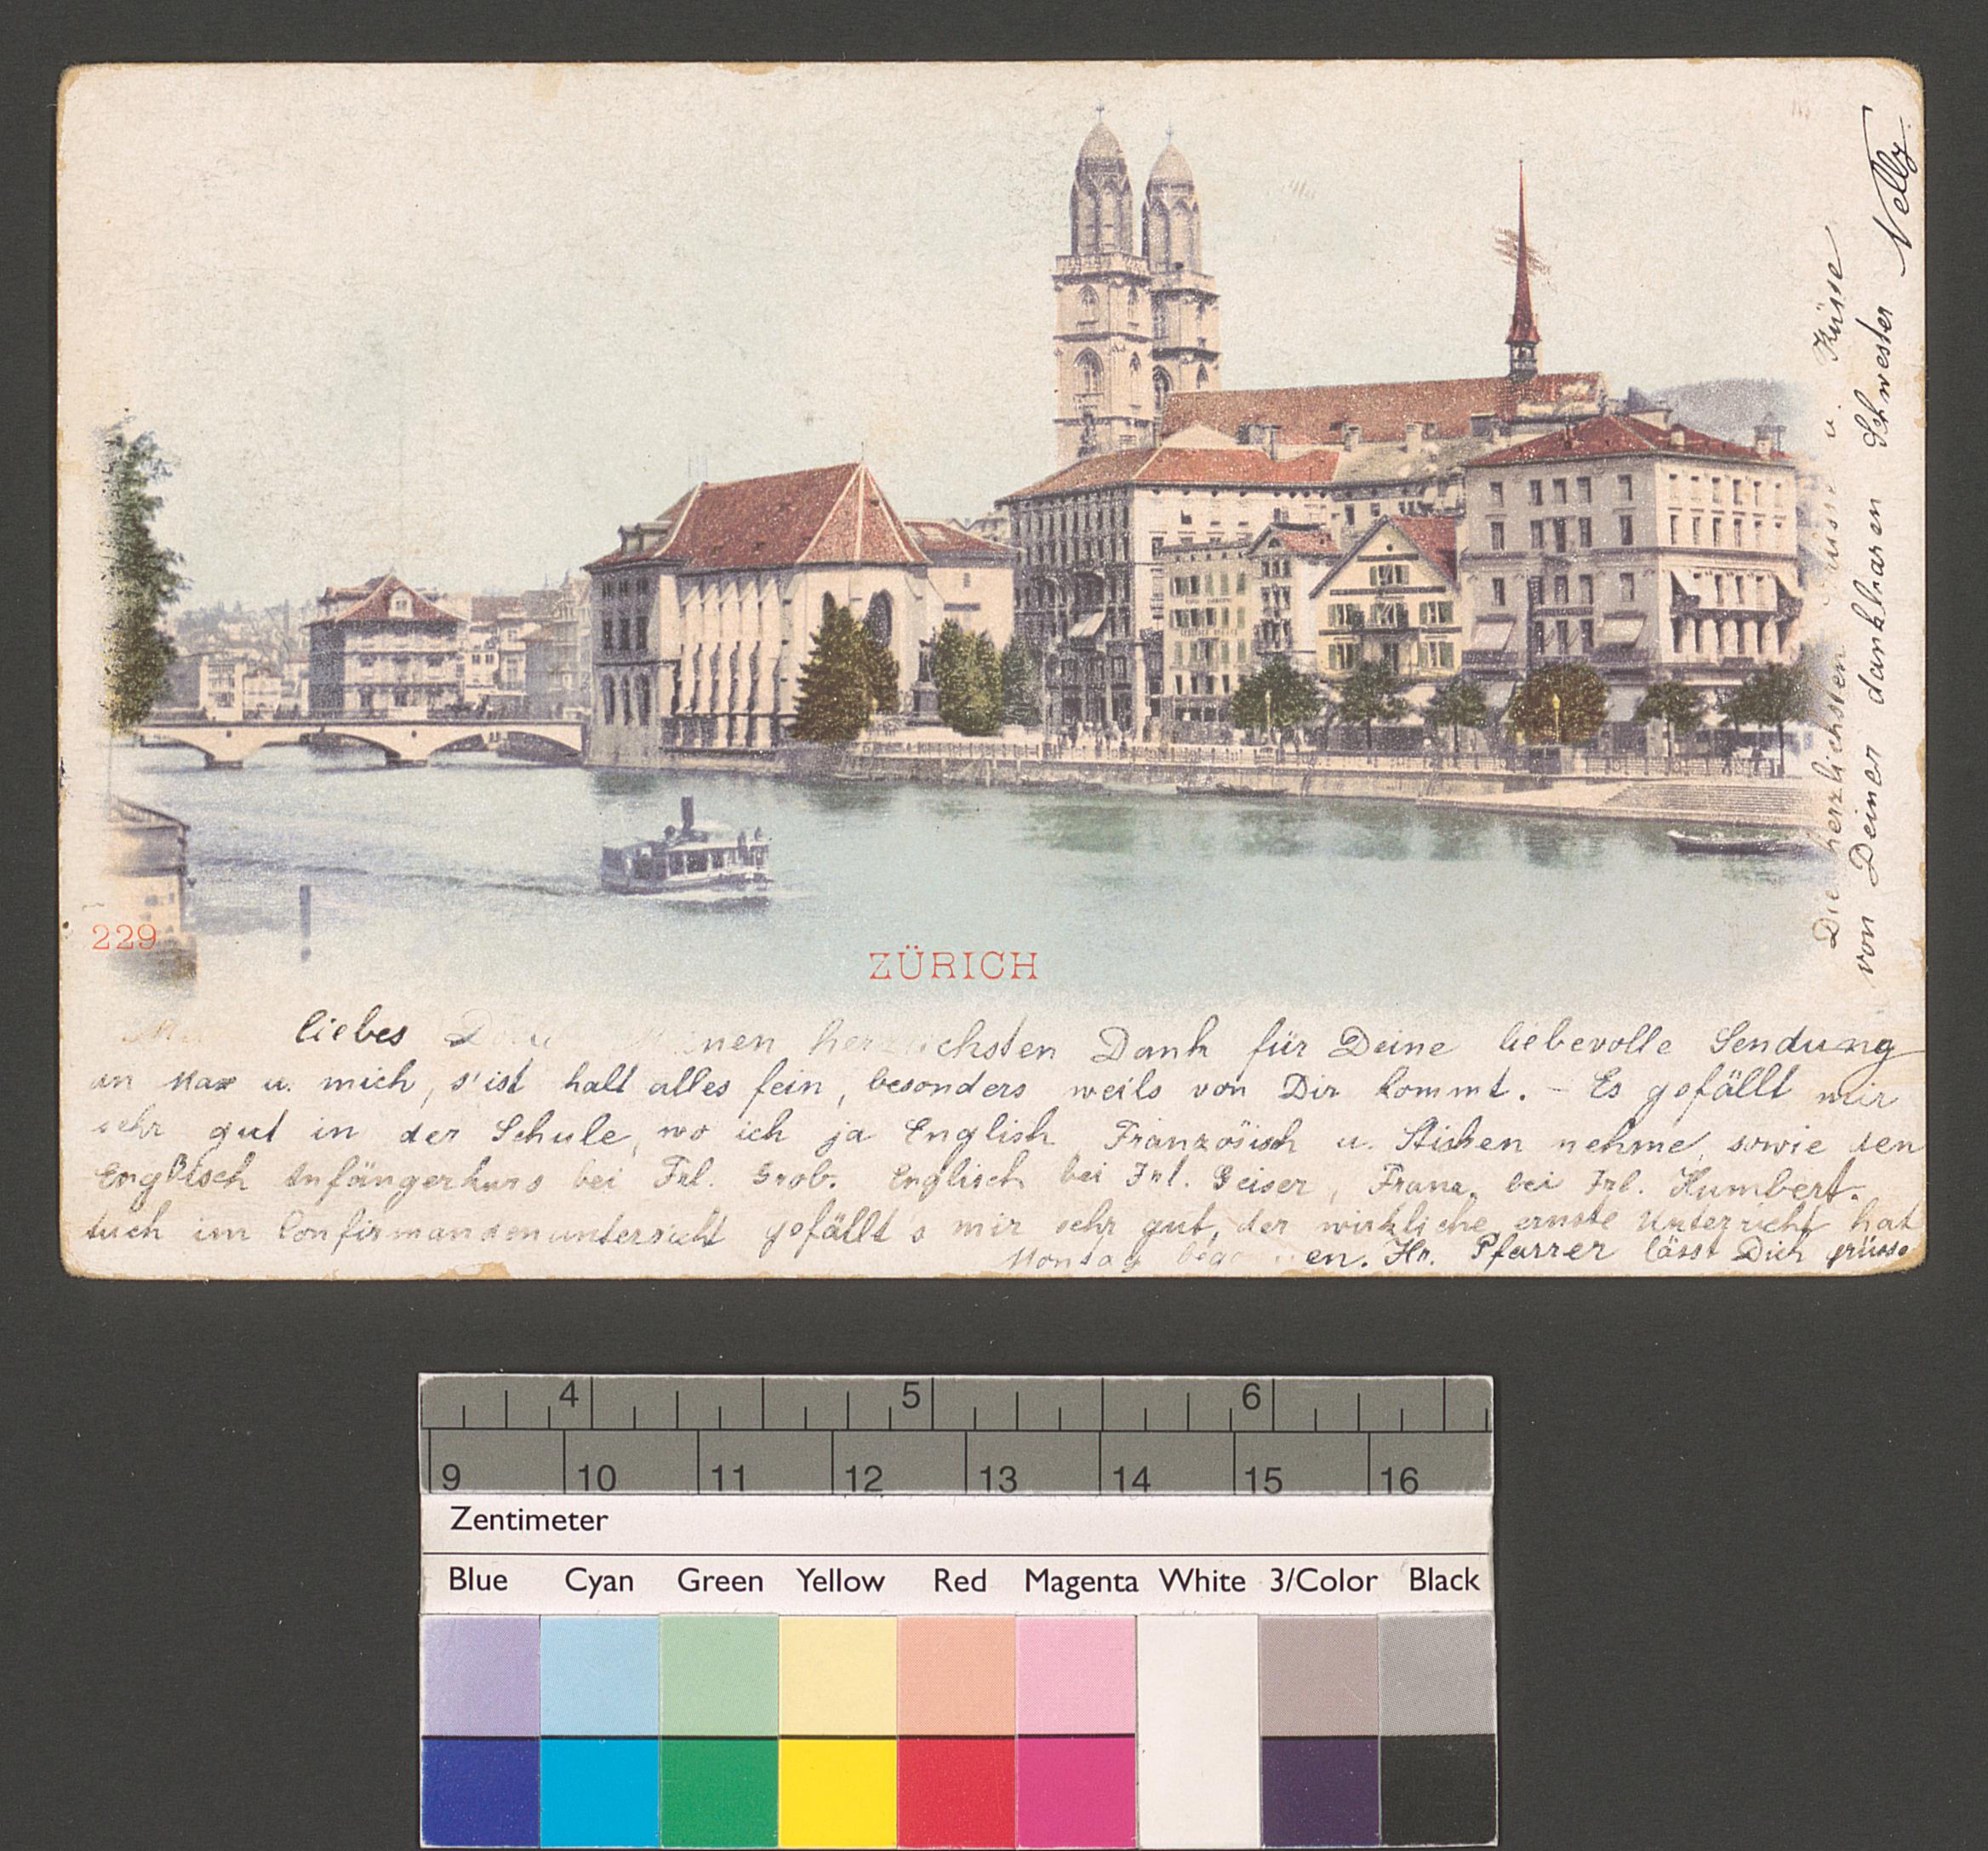 229
ZÜRICH
liebes nen herzlichsten Dank für Deine liebevolle Sendung
an Max u. mich, s'ist halt alles fein, besonders weils von Dir kommt. - Es gefällt mir
sehr gut in der Schule, wo ich ja English Französisch u. Sticken nehme, sowie den
Englisch Anfängerkurs bei Frl. Grob. Englisch bei Frl. Geiser, Franz. bei Frl. Humbert.
Auch im Confirmandenunterricht gefällt's mir sehr gut, der wirkliche ernste Unterricht hat
Montag en. Hr. Pfarrer lässt Dich grüsse
Die herzlichsten Grüsse u. Küsse
von Deiner dankbaren Schwester Nelly.
4 5 6
9 10 11 12 13 14 15 16
Zentimeter
Blue Cyan Green Yellow Red Magenta White 3/Color Black